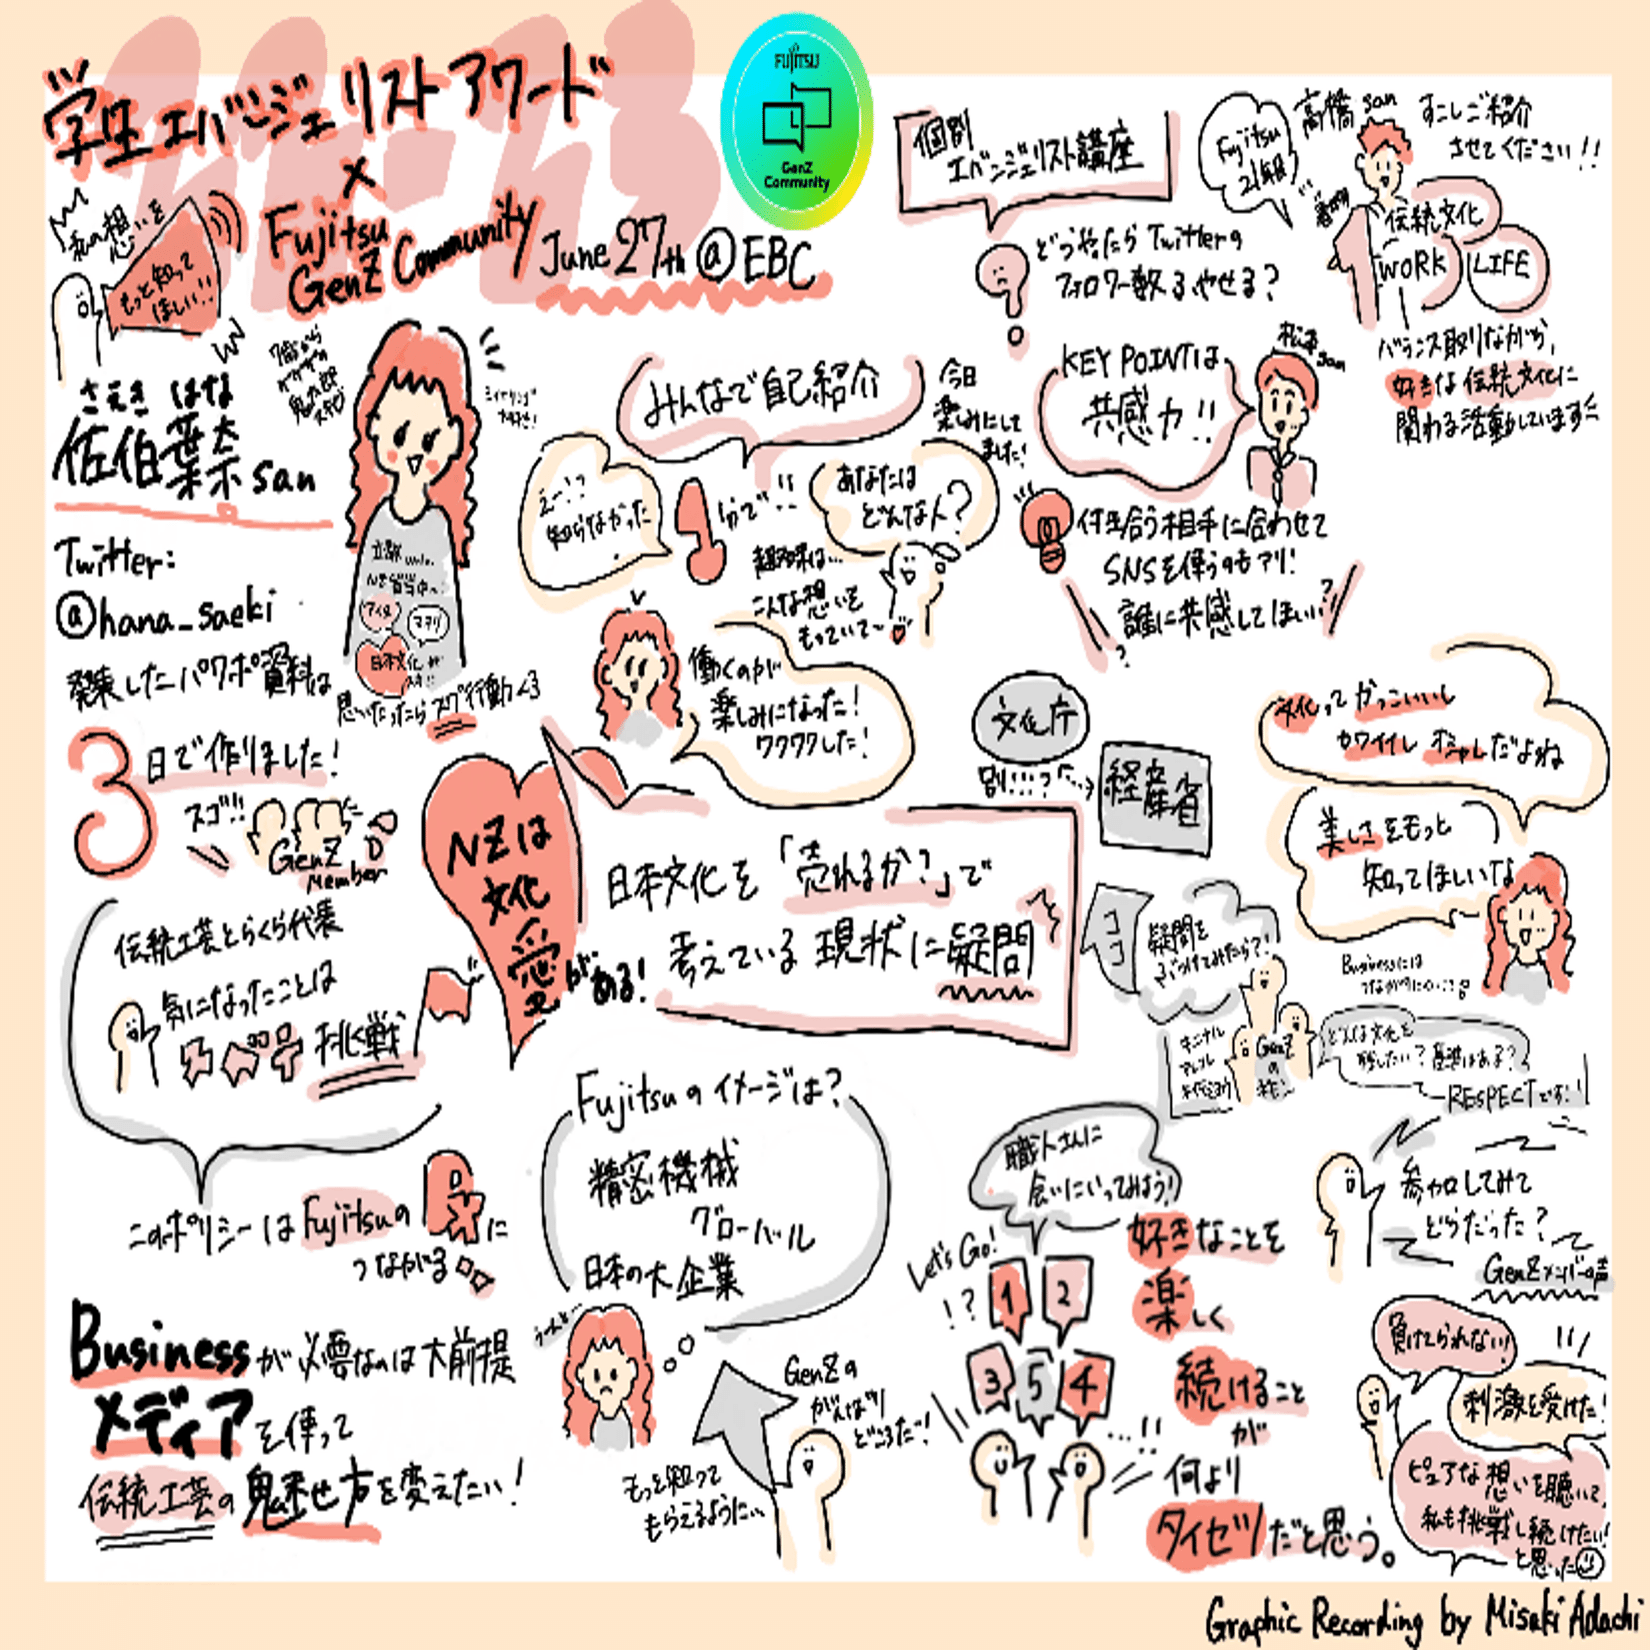 学生エバンジェリストアワード
×
Fujitsu
GenZ Community
June 27th @EBC
FUJITSU
GenZ
Community
私の想いを
もっと知って
ほしい!!
さえき はな
佐伯葉奈 san
Twitter:
@hana_saeki
発表したパワポ資料は
3日で作りました!
スゴ!!
GenZ
Member
NZ留学中
マオリ
日本文化が
思いたったらスグ行動<3
みんなで自己紹介
今日
楽しみにして
ました!
え~!?
知らなかった
1分で!!
あなたは
どんな人?
趣味は…
こんな想いを
もっていて~
働くのが
楽しみになった!
ワクワクした!
個別
エバンジェリスト講座
どうやったらTwitterの
フォロワー数ふやせる?
KEY POINTは
共感力!!
松本
san
付き合う相手に合わせて
SNSを使うのもアリ!
誰に共感してほしい?
Fujitsu
21年目
高橋 san
すこしご紹介
させてください!!
伝統文化
WORK
LIFE
バランス取りながら、
好きな伝統文化に
関わる活動しています
伝統工芸とらくら代表
気になったことは
スグ挑戦
このポリシーはFujitsuの
に
つながる
Businessが必要なのは大前提
メディアを使って
伝統工芸の魅せ方を変えたい!
NZは
文化
愛がある!
日本文化を「売れるか?」で
考えている現状に疑問
文化庁
別…?
経産省
ココ
疑問を
ぶつけてみたら?!
GenZ
の
文化ってかっこいいし
カワイイし オシャレだよね
美しさをもっと
知ってほしいな
Businessには
どんな文化を
残したい?基準はある?
RESPECTです!
Fujitsuのイメージは?
精密機械
グローバル
日本の大企業
う~んと…
もっと知って
もらえるように…
GenZの
がんばり
どころだ~!
職人さんに
会いにいってみよう!
Let's Go!
!?
1
2
3
5
4
好きなことを
楽しく
続けること
が
何より
タイセツだと思う。
参加してみて
どうだった?
GenZメンバーの声
負けてられない!
刺激を受けた!
ピュアな想いを聴いて、
私も挑戦し続けたい!
と思った
Graphic Recording by Misaki Adachi